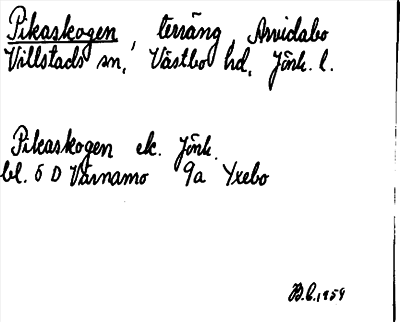 Pikaskogen, terräng, Arvidabo
Villstads sn, Västbo hd, Jönk. l.
Pikaskogen ek. Jönk.
bl. 6 D Värnamo 9a Yxebo
B.L. 1959